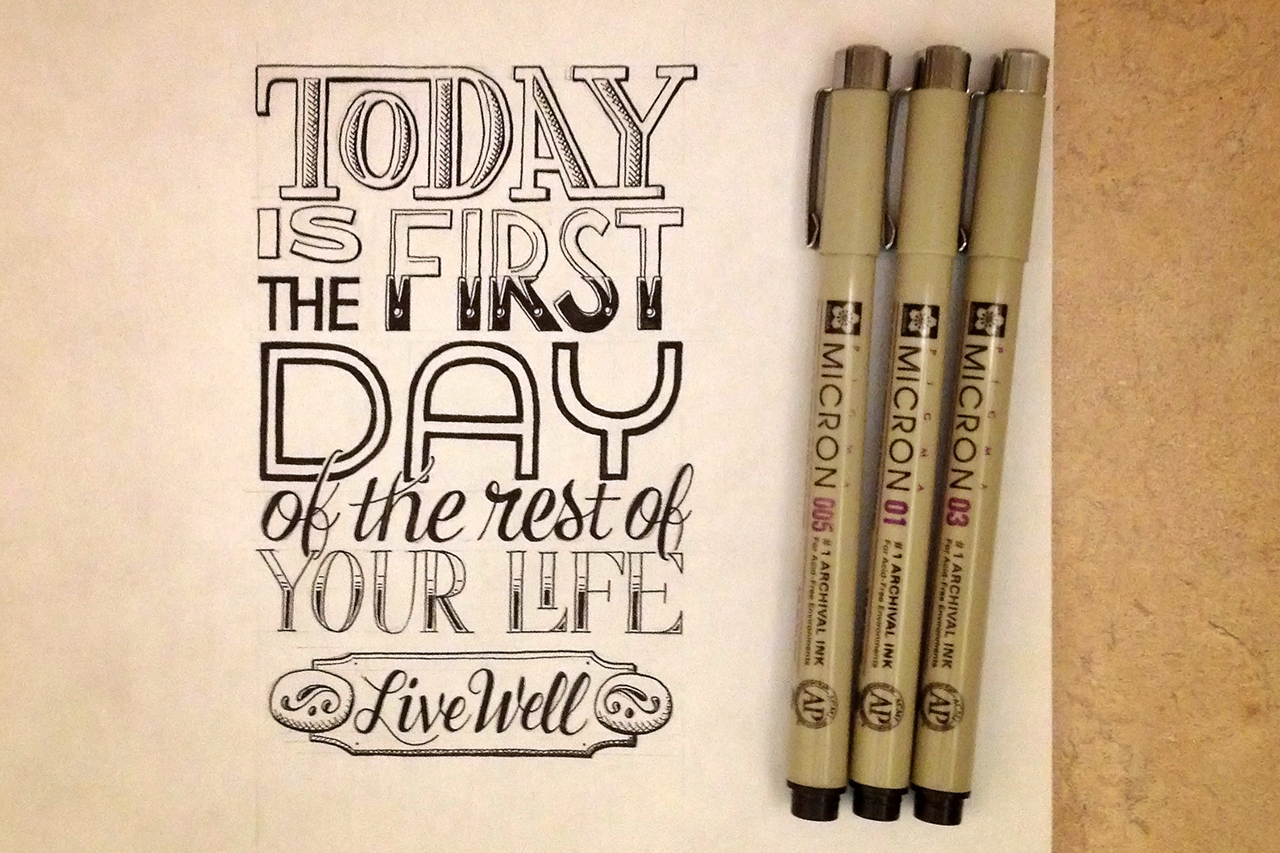 TODAY
IS FIRST
THE
DAY
of the rest of
YOUR LIFE
Live Well
PIGMA
MICRON 005 #1 ARCHIVAL INK
For Acid-Free Environments
AP
PIGMA
MICRON 01 #1 ARCHIVAL INK
For Acid-Free Environments
AP
PIGMA
MICRON 03 #1 ARCHIVAL INK
For Acid-Free Environments
AP